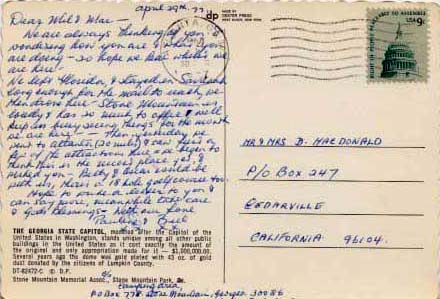 april 29th. 77.
Dear Wil & Mae —
We are always thinking of you
wondering how you are & what you
are doing — so hope we hear while we
are here.
We left Florida, & stayed in Savannah
long enough for the mail to reach, we
then drove here — Stone Mountain is
lovely & has so much to offer & will
keep us busy seeing things for the month
we are here — Then yesterday we
went to atlanta (20 miles) & saw just a
few of the attractions here & we began to
think this is the nicest place yet, &
wished you — Becky & Brian could be
with us, there is 18 hole golf course too.
Hope to write a letter to you &
can say more, meanwhile take care
& Gods Blessings — with our love
Pauline & Bill
THE GEORGIA STATE CAPITOL, modeled after the Capitol of the
United States in Washington, stands unique among all other public
buildings in the United States as it cost exactly the amount of
the original and only appropriation made for it — $1,000,000.00.
Several years ago the dome was gold plated with 43 oz. of gold
dust donated by the citizens of Lumpkin County.
DT-82472-C © D.P.
Stone Mountain Memorial Assoc., Stone Mountain Park, Ga.
c/o Camping area
P O Box 778 Stone Mountain, Georgia 30086
dp
MADE BY
DEXTER PRESS
WEST NYACK, NEW YORK
TO ASSEMBLE
USA 9c
MR & MRS D. MACDONALD
P/O BOX 247
CEDARVILLE
CALIFORNIA 96104.